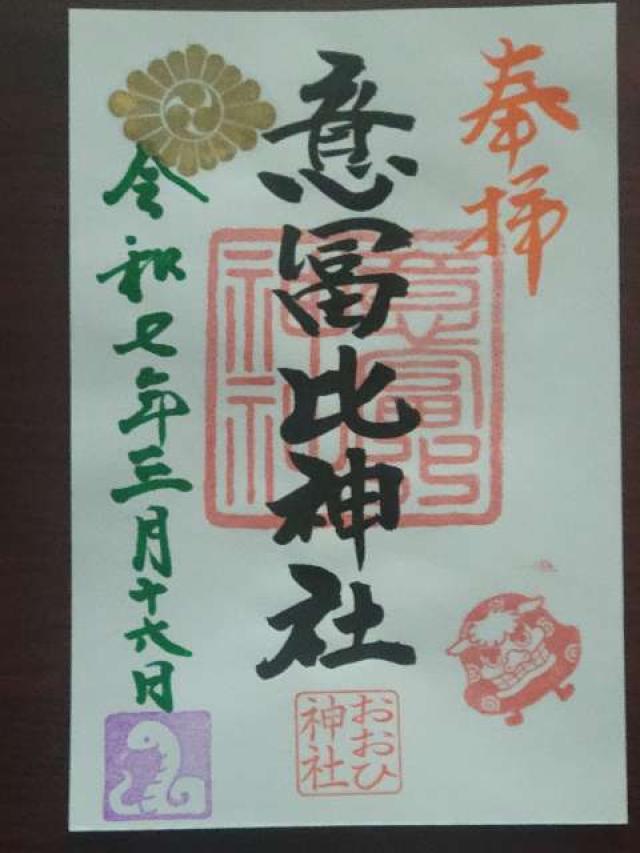 奉拝
意冨比神社
意富比
神社
おおひ
神社
令和七年三月十六日